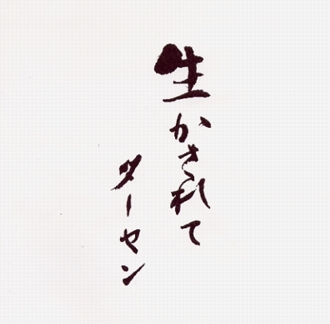 生かされて
ターセン